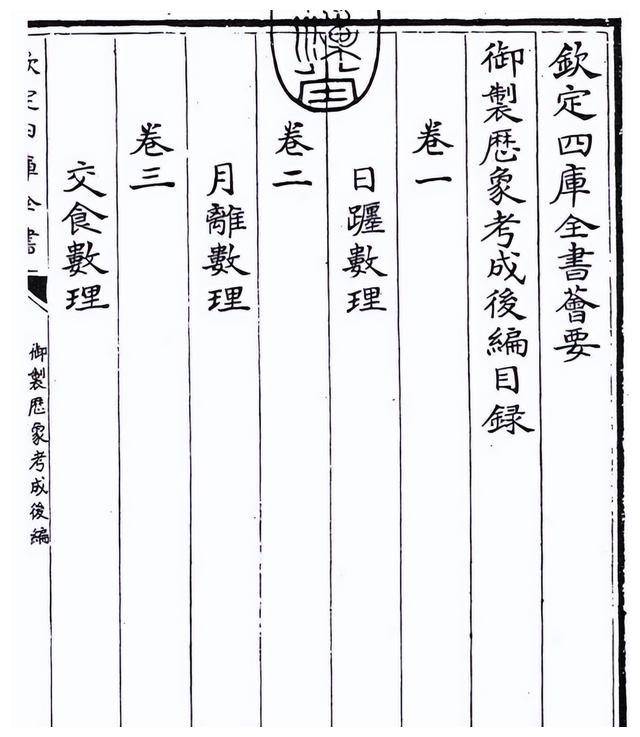 欽定四庫全書薈要
御製歷象考成後編目録
卷一
日躔數理
卷二
月離數理
卷三
交食數理
欽定四庫全書
御製歷象考成後編